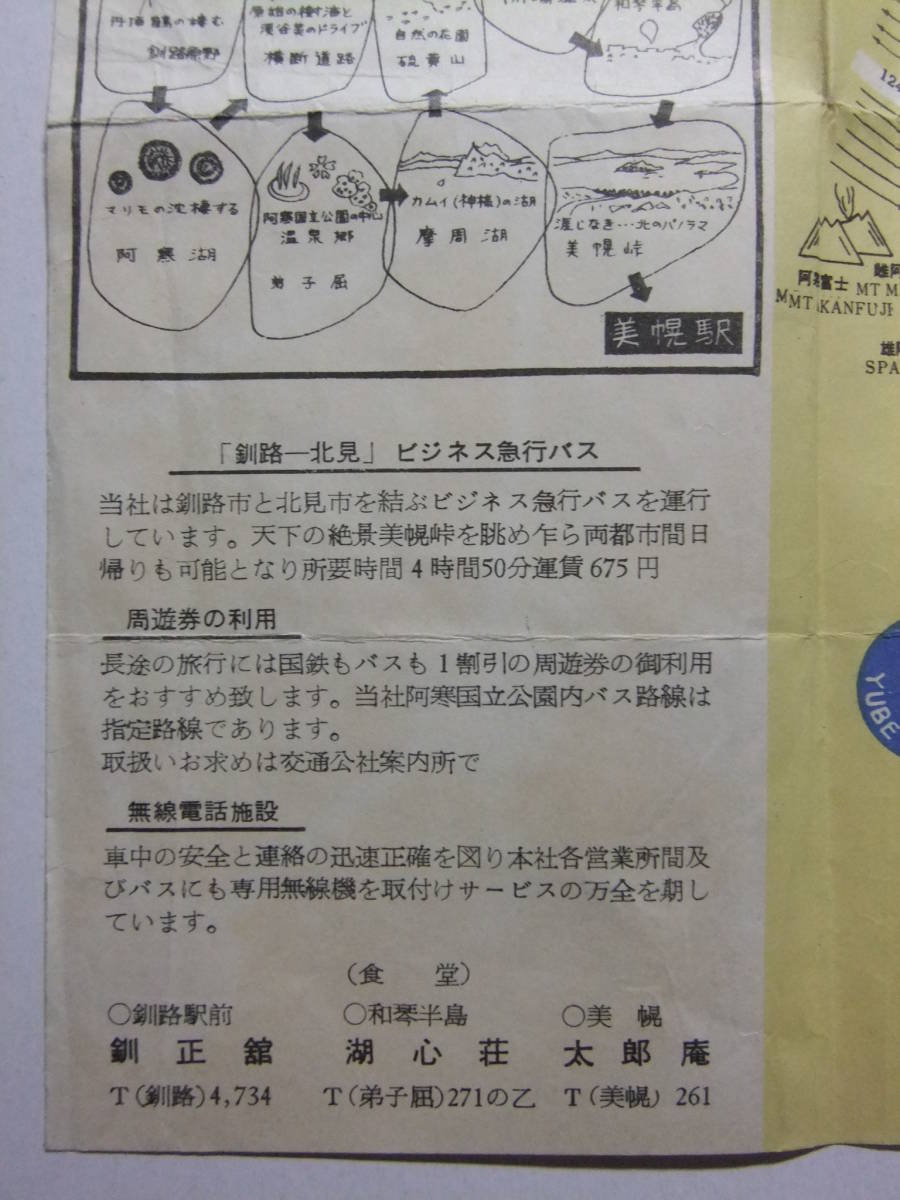 丹頂鶴の棲む
釧路原野
原始の樹海と
渓谷美のドライブ
横断道路
自然の花園
硫黄山
和琴半島
マリモの沈棲する
阿寒湖
阿寒国立公園の中心
温泉郷
弟子屈
カムイ(神様)の湖
摩周湖
涯しなき…北のパノラマ
美幌峠
美幌駅
「釧路―北見」ビジネス急行バス
当社は釧路市と北見市を結ぶビジネス急行バスを運行
しています。天下の絶景美幌峠を眺め乍ら両都市間日
帰りも可能となり所要時間4時間50分運賃675円
周遊券の利用
長途の旅行には国鉄もバスも1割引の周遊券の御利用
をおすすめ致します。当社阿寒国立公園内バス路線は
指定路線であります。
取扱いお求めは交通公社案内所で
無線電話施設
車中の安全と連絡の迅速正確を図り本社各営業所間及
びバスにも専用無線機を取付けサービスの万全を期し
ています。
(食　堂)
○釧路駅前　○和琴半島　○美幌
釧正舘　湖心荘　太郎庵
T(釧路)4,734　T(弟子屈)271の乙　T(美幌)261
124
阿寒富士
MT AKANFUJI
雌阿
MT M
雄阿
SPA
YUBE